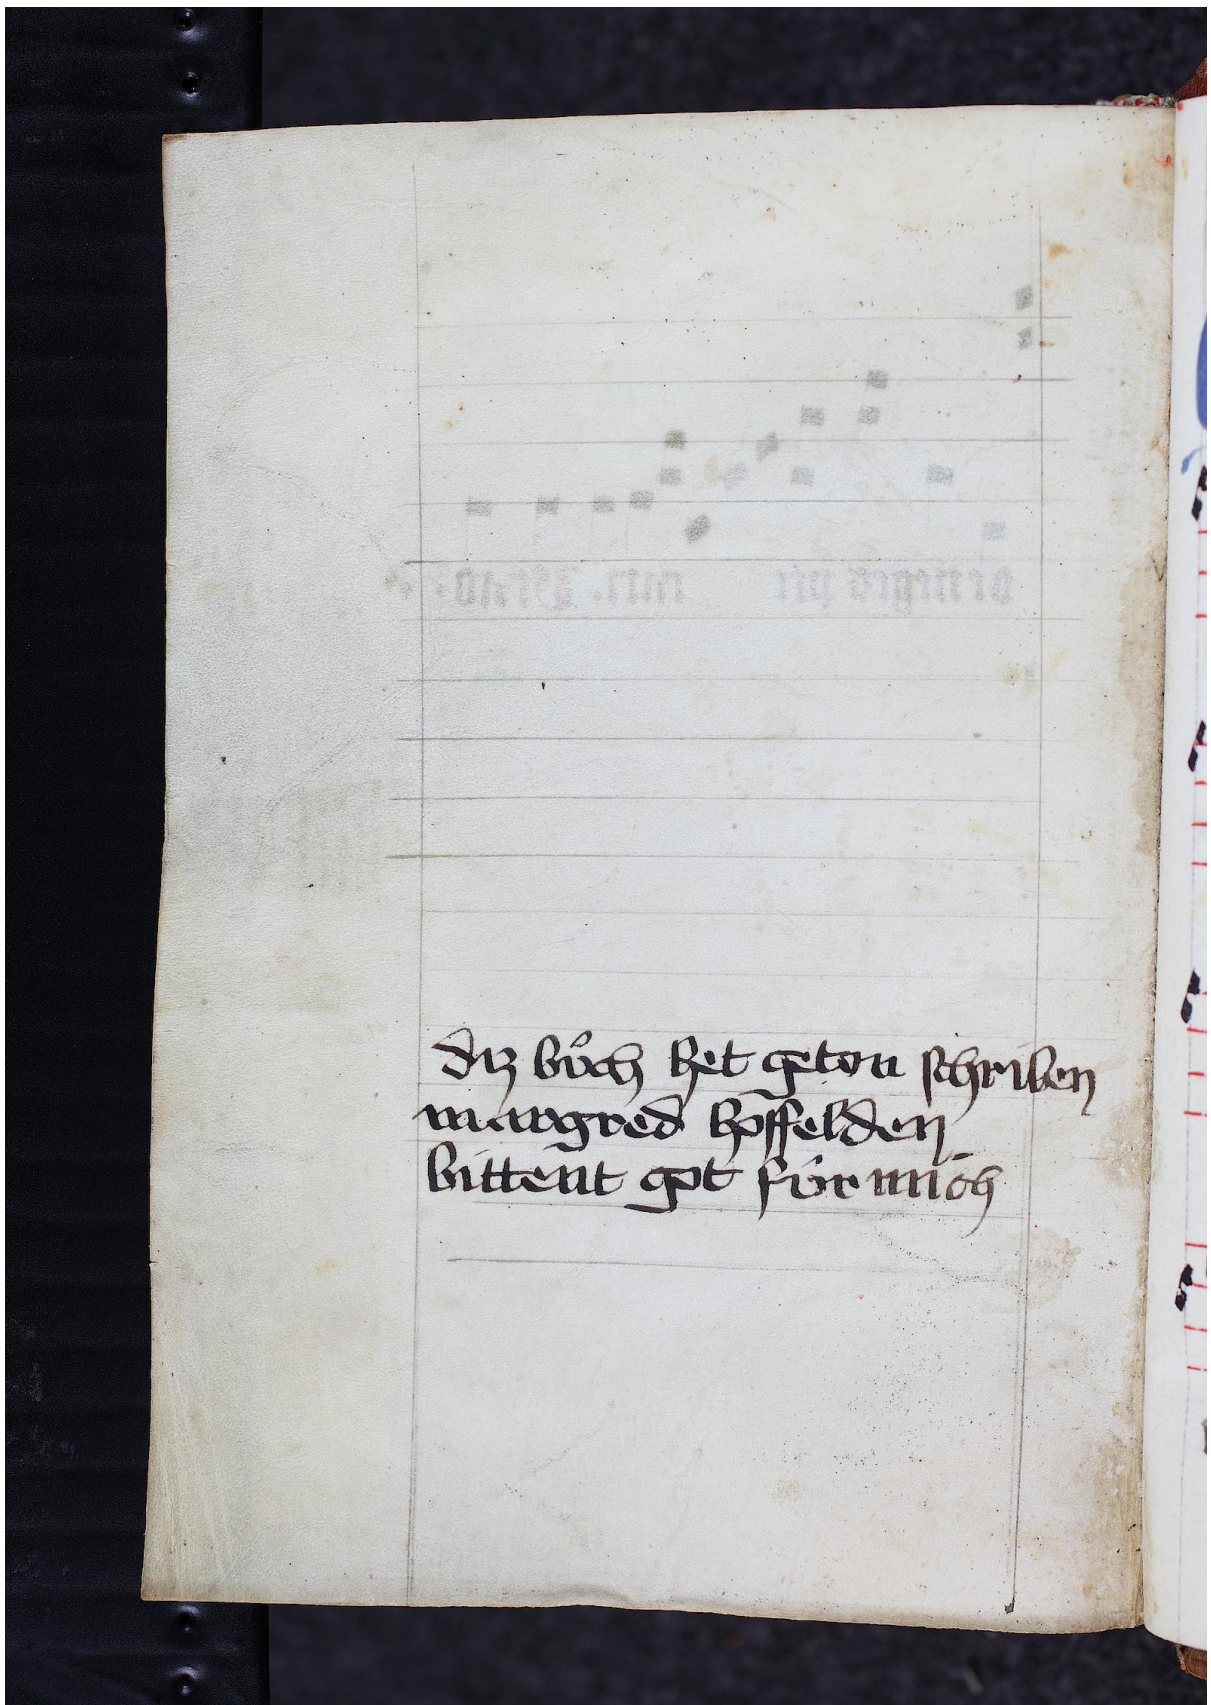 diz bůch het geton schriben
margred hp̄ffelden
bittent got für mich